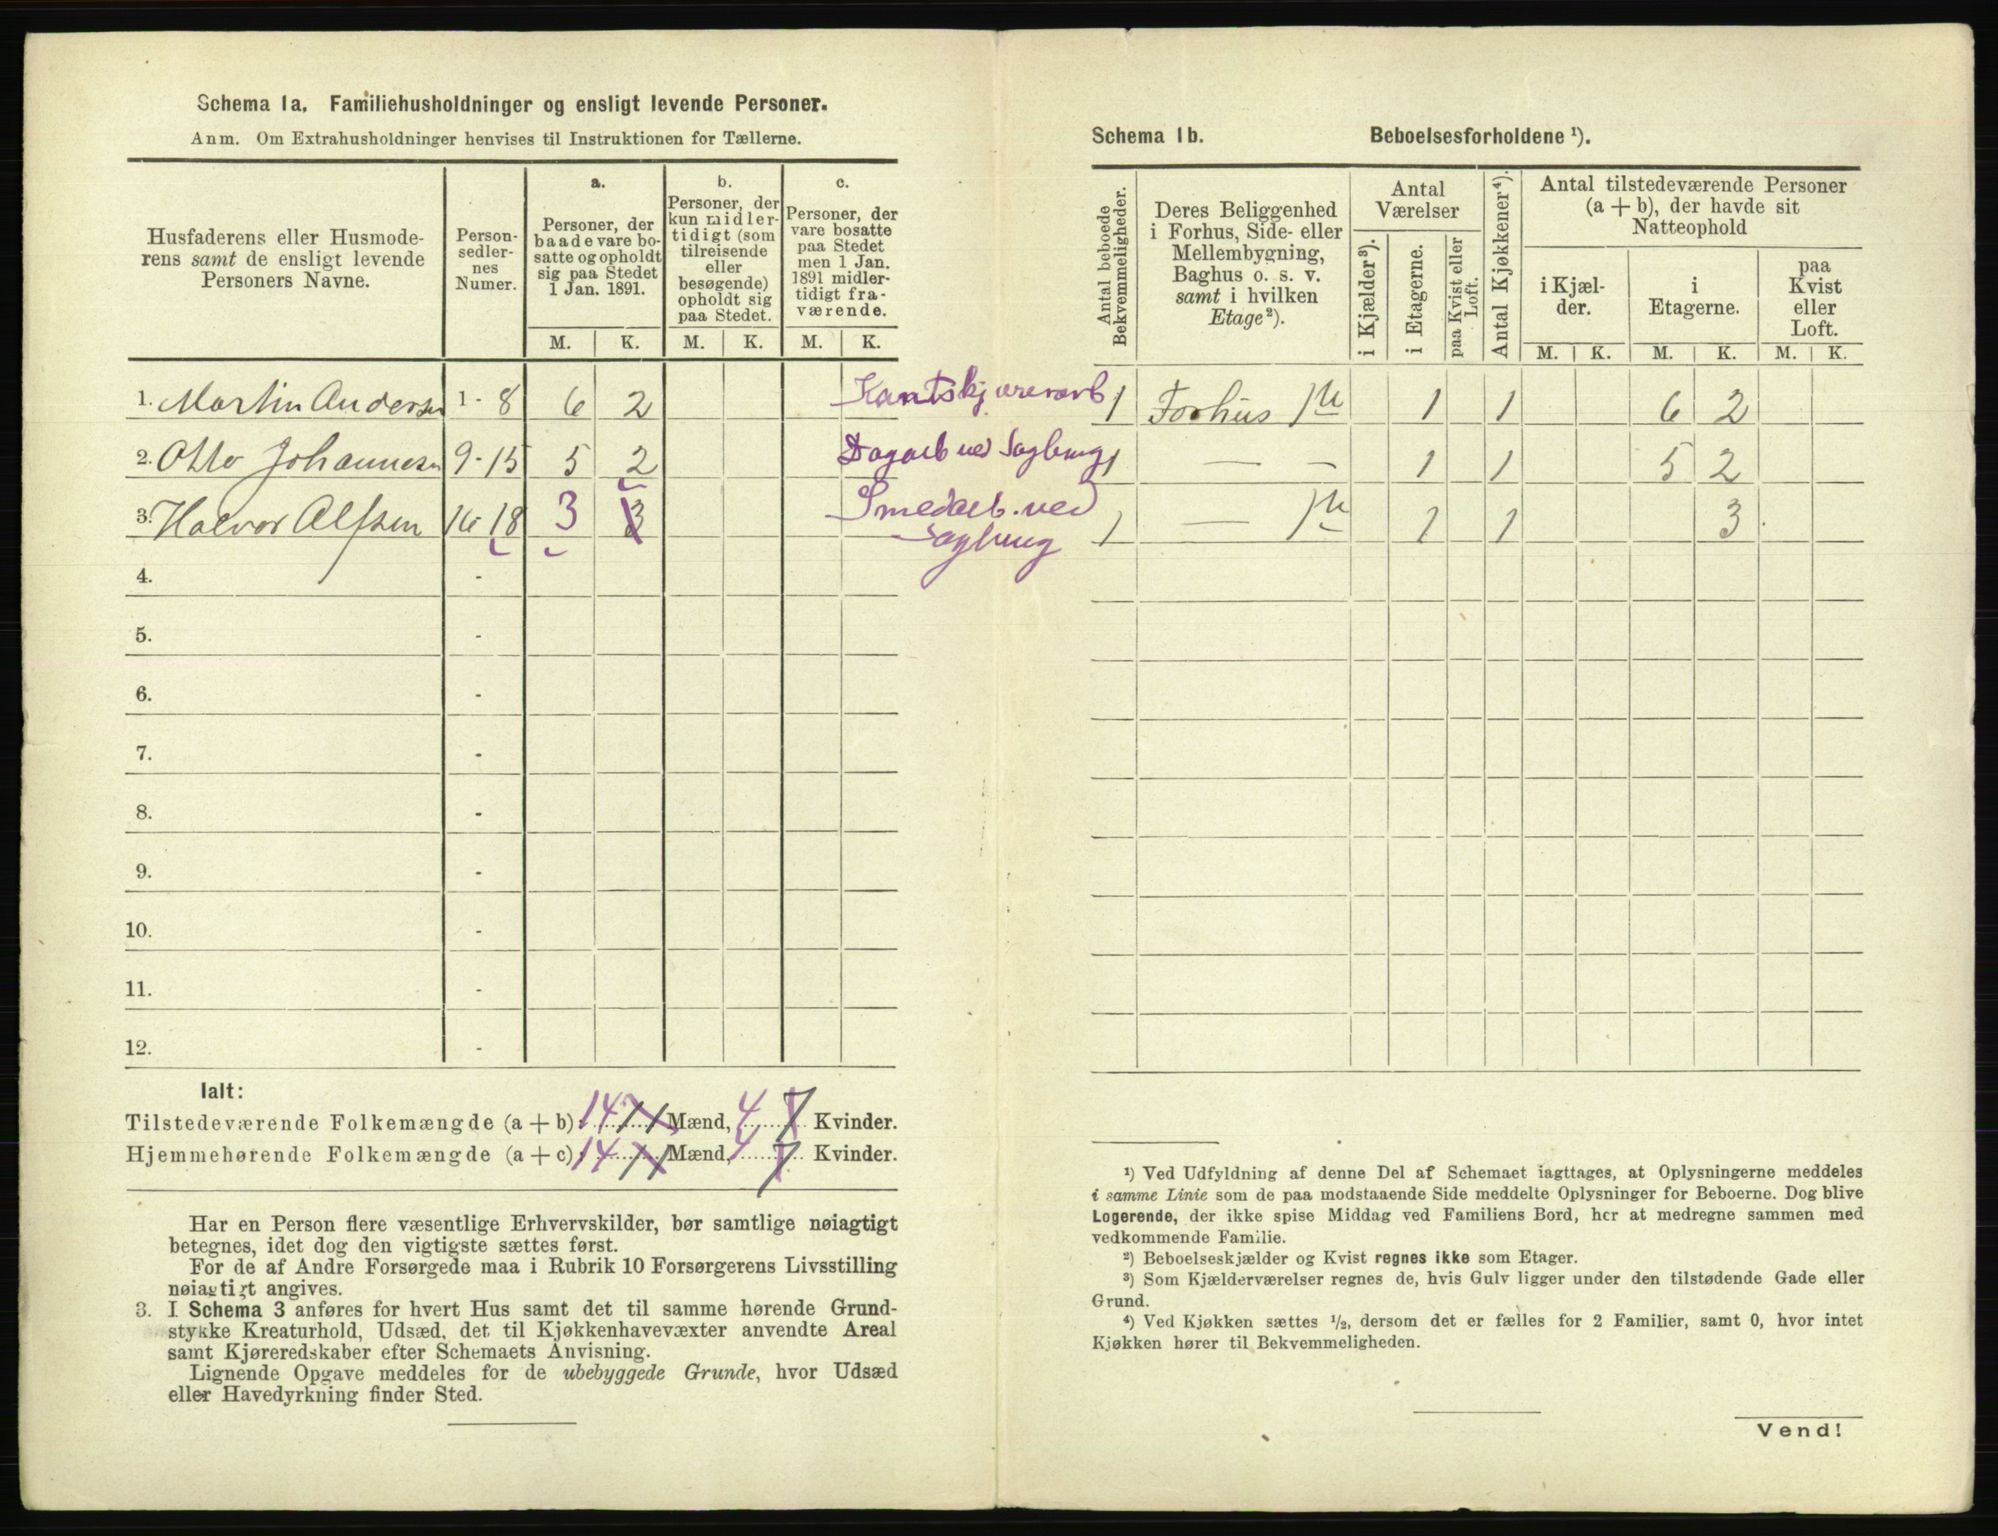 Schema 1a. Familiehusholdninger og ensligt levende Personer.
Anm. Om Extrahusholdninger henvises til Instruktionen for Tællerne.
Husfaderens eller Husmoderens samt de ensligt levende Personers Navne.
Personsedlernes Numer.
a.
Personer, der baade vare bosatte og opholdt sig paa Stedet 1 Jan. 1891.
b.
Personer, der kun midlertidigt (som tilreisende eller besøgende) opholdt sig paa Stedet.
c.
Personer, der vare bosatte paa Stedet men 1 Jan. 1891 midlertidigt fraværende.
M. K. M. K. M. K.
1. Martin Andersen 1-8 6 2 Kantskjærerarb
2. Otto Johannesen 9-15 5 2 Dagarb ved Sagbrug
3. Halvor Alfsen 16-18 3 3 Smedarb. ved
Sagbrug
4. -
5. -
6. -
7. -
8. -
9. -
10. -
11. -
12. -
Ialt:
Tilstedeværende Folkemængde (a + b): 14 11 Mænd, 4 7 Kvinder.
Hjemmehørende Folkemængde (a + c): 14 11 Mænd, 4 7 Kvinder.
Har en Person flere væsentlige Erhvervskilder, bør samtlige nøiagtigt
betegnes, idet dog den vigtigste sættes først.
For de af Andre Forsørgede maa i Rubrik 10 Forsørgerens Livsstilling
nøiagtigt angives.
3. I Schema 3 anføres for hvert Hus samt det til samme hørende Grund-
stykke Kreaturhold, Udsæd, det til Kjøkkenhavevæxter anvendte Areal
samt Kjøreredskaber efter Schemaets Anvisning.
Lignende Opgave meddeles for de ubebyggede Grunde, hvor Udsæd
eller Havedyrkning finder Sted.
Schema 1b. Beboelsesforholdene ¹).
Antal beboede Bekvemmeligheder.
Deres Beliggenhed i Forhus, Side- eller Mellembygning, Baghus o. s. v. samt i hvilken Etage²).
Antal Værelser
i Kjælder³).
i Etagerne.
paa Kvist eller Loft.
Antal Kjøkkener⁴).
Antal tilstedeværende Personer (a + b), der havde sit Natteophold
i Kjælder.
i Etagerne.
paa Kvist eller Loft.
M. K. M. K. M. K.
1 Forhus 1te 1 1 6 2
1 — – 1 1 5 2
1 — 1te 1 1 3
¹) Ved Udfyldning af denne Del af Schemaet iagttages, at Oplysningerne meddeles
i samme Linie som de paa modstaaende Side meddelte Oplysninger for Beboerne. Dog blive
Logerende, der ikke spise Middag ved Familiens Bord, her at medregne sammen med
vedkommende Familie.
²) Beboelseskjælder og Kvist regnes ikke som Etager.
³) Som Kjælderværelser regnes de, hvis Gulv ligger under den tilstødende Gade eller
Grund.
⁴) Ved Kjøkken sættes ½, dersom det er fælles for 2 Familier, samt 0, hvor intet
Kjøkken hører til Bekvemmeligheden.
Vend!